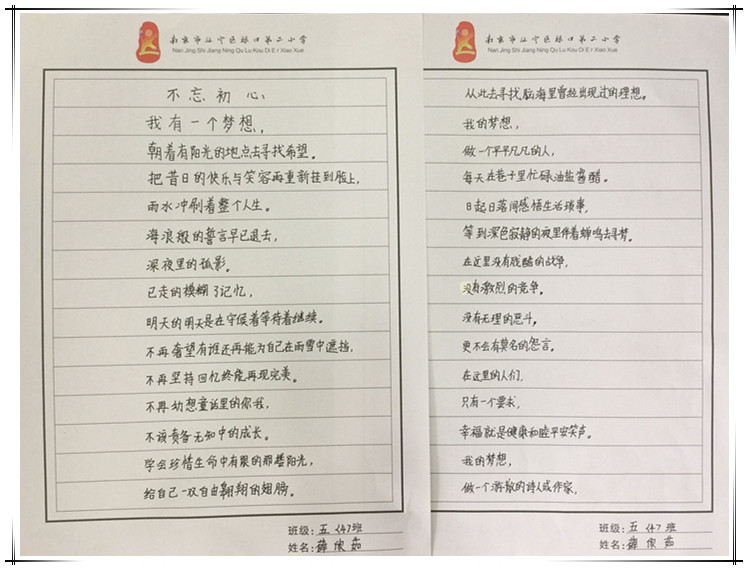 南京市江宁区禄口第二小学
Nan Jing Shi Jiang Ning Qu Lu Kou Di Er Xiao Xue
不忘初心
我有一个梦想,
朝着有阳光的地点去寻找希望。
把昔日的快乐与笑容再重新挂到脸上,
雨水冲刷着整个人生。
海浪般的誓言早已退去,
深夜里的孤影。
已走的模糊了记忆,
明天的明天是在守候着等待着继续。
不再奢望有谁还再能为自己在雨雪中遮挡,
不再坚持回忆终能再现完美。
不再幼想童话里的你我,
不该责备无知中的成长。
学会珍惜生命中有限的那些阳光,
给自己一双自由翱翔的翅膀。
班级: 五〈4〉班
姓名: 薛 茹
南京市江宁区禄口第二小学
Nan Jing Shi Jiang Ning Qu Lu Kou Di Er Xiao Xue
从此去寻找脑海里曾经出现过的理想。
我的梦想,
做一个平平凡凡的人,
每天在巷子里忙碌油盐酱醋。
日起日落间感悟生活琐事,
等到深色寂静的夜里伴着蝉鸣去寻梦。
在这里没有残酷的战争,
没有激烈的竞争。
没有无理的恶斗。
更不会有莫名的怨言。
在这里的人们,
只有一个要求,
幸福就是健康和睦平安笑声。
我的梦想,
做一个潇散的诗人或作家,
班级: 五〈4〉班
姓名: 薛 茹